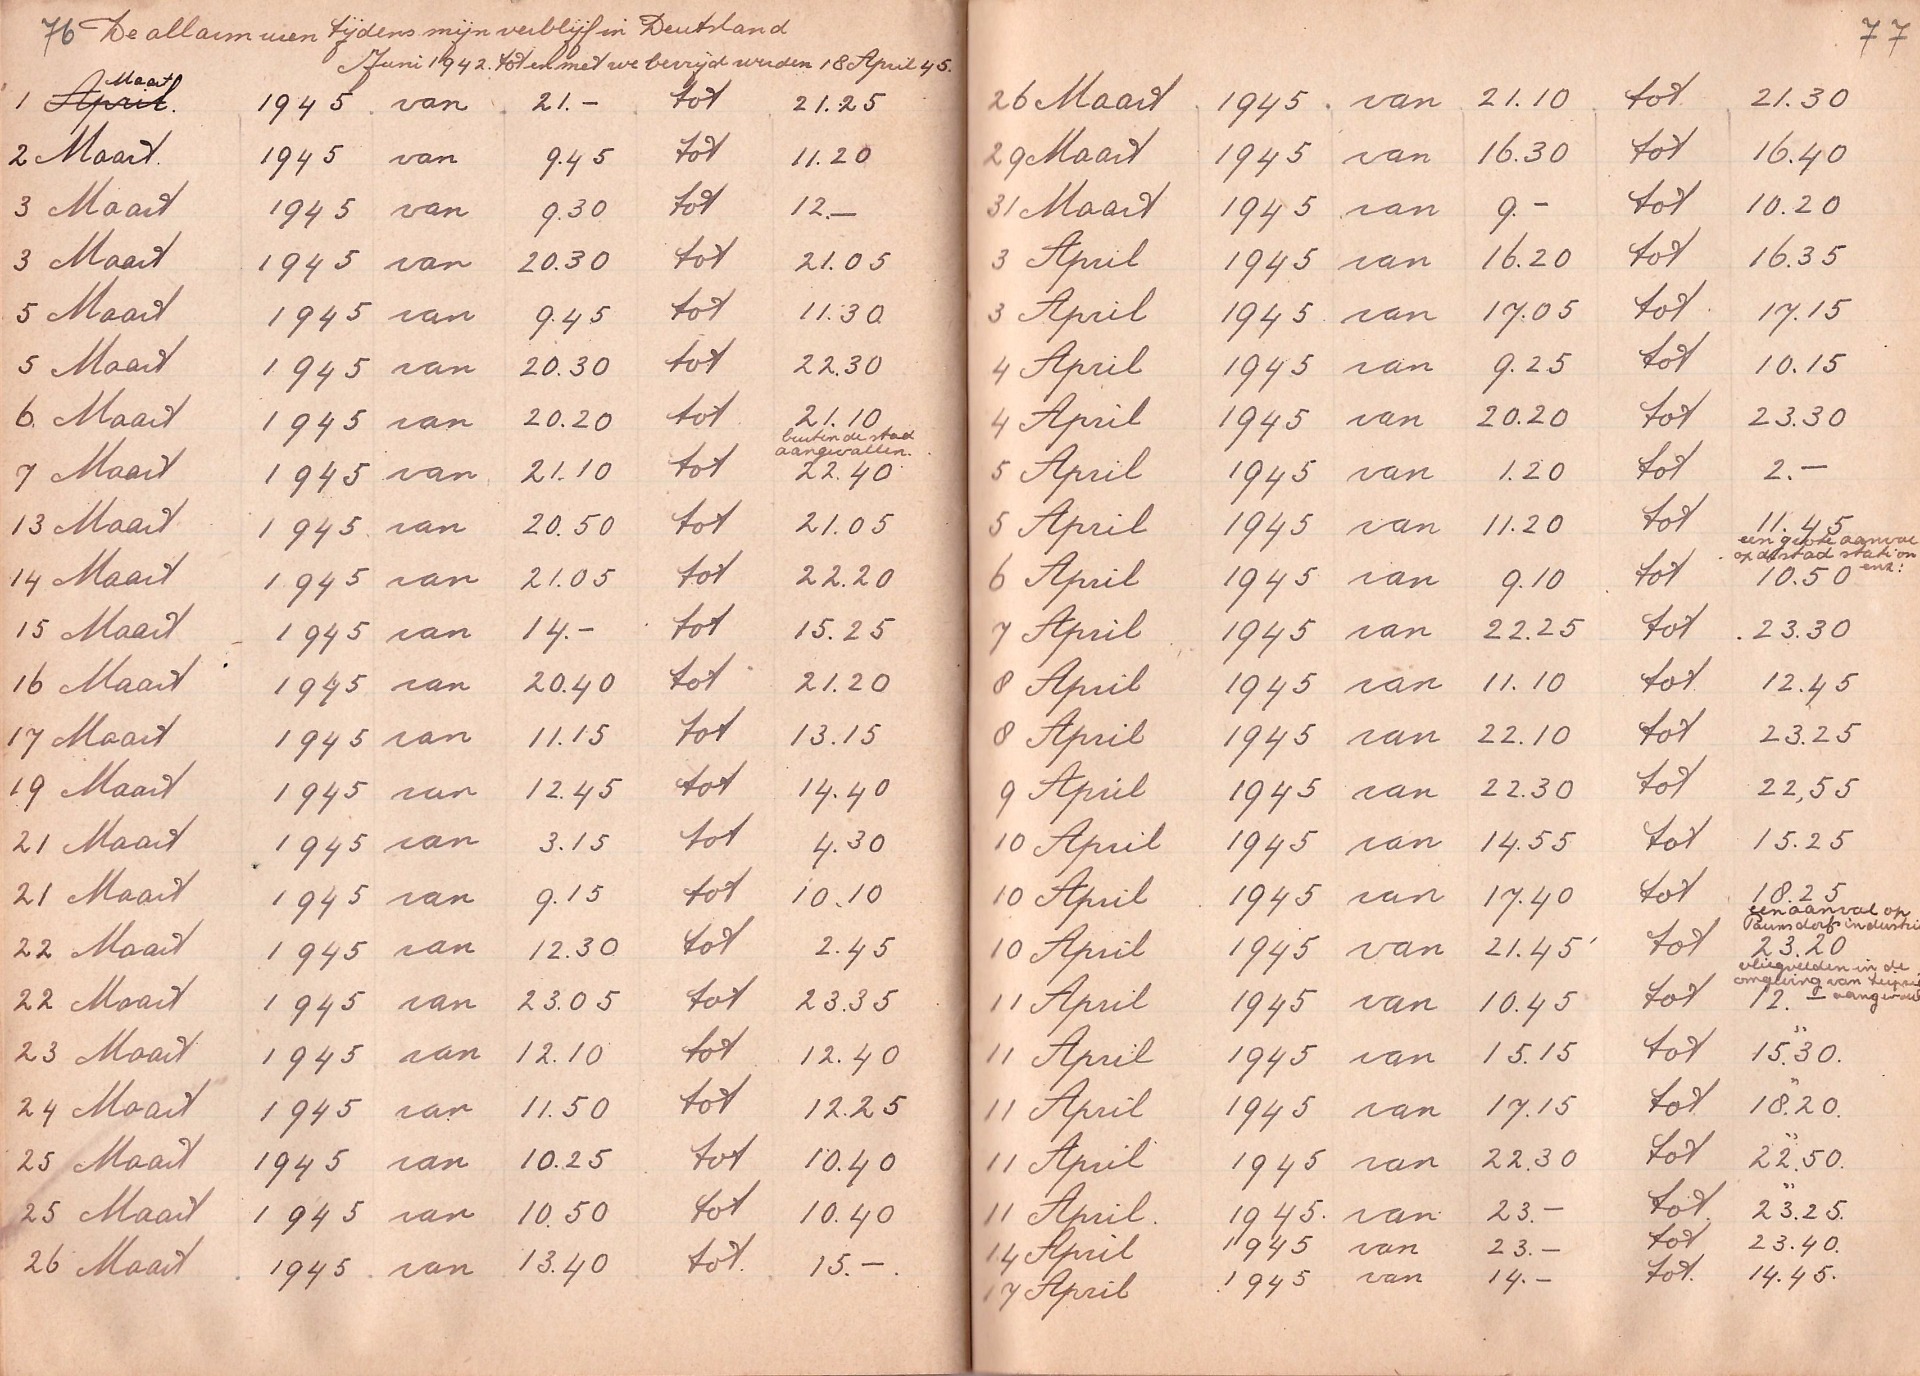 76 De allarm uren tijdens mijn verblijf in Deutsland
Juni 1942. tot en met we bevrijd werden 18 April 45.
Maart
1 April. 1945 van 21.- tot 21.25
2 Maart. 1945 van 9.45 tot 11.20
3 Maart 1945 van 9.30 tot 12.-
3 Maart 1945 van 20.30 tot 21.05
5 Maart 1945 van 9.45 tot 11.30
5 Maart 1945 van 20.30 tot 22.30
6. Maart 1945 van 20.20 tot 21.10
buiten de stad
aangevallen.
7 Maart 1945 van 21.10 tot 22.40
13 Maart 1945 van 20.50 tot 21.05
14 Maart 1945 van 21.05 tot 22.20
15 Maart 1945 van 14.- tot 15.25
16 Maart 1945 van 20.40 tot 21.20
17 Maart 1945 van 11.15 tot 13.15
19 Maart 1945 van 12.45 tot 14.40
21 Maart 1945 van 3.15 tot 4.30
21 Maart 1945 van 9.15 tot 10.10
22 Maart 1945 van 12.30 tot 2.45
22 Maart 1945 van 23.05 tot 23.35
23 Maart 1945 van 12.10 tot 12.40
24 Maart 1945 van 11.50 tot 12.25
25 Maart 1945 van 10.25 tot 10.40
25 Maart 1945 van 10.50 tot 10.40
26 Maart 1945 van 13.40 tot. 15.-.
77
26 Maart 1945. van 21.10 tot 21.30
29 Maart 1945 van 16.30 tot 16.40
31 Maart 1945 van 9.- tot 10.20
3 April 1945 van 16.20 tot 16.35
3 April 1945 van 17.05 tot 17.15
4 April 1945 van 9.25 tot 10.15
4 April 1945 van 20.20 tot 23.30
5 April 1945 van 1.20 tot 2.-
5 April 1945 van 11.20 tot 11.45
een grote aanval
op de stad station
enz:
6 April 1945 van 9.10 tot 10.50
7 April 1945 van 22.25 tot 23.30
8 April 1945 van 11.10 tot 12.45
8 April 1945 van 22.10 tot 23.25
9 April 1945 van 22.30 tot 22,55
10 April 1945 van 14.55 tot 15.25
10 April 1945 van 17.40 tot 18.25
een aanval op
Paunsdorfs industrie
10 April 1945 van 21.45 tot 23.20
vliegvelden in de
omgeving van
11 April 1945 van 10.45 tot 12.-
11 April 1945 van 15.15 tot 15.30.
"
11 April 1945 van 17.15 tot 18.20.
"
11 April 1945 van 22.30 tot 22.50.
"
11 April. 1945. van 23.- tot. 23.25.
"
14 April 1945 van 23.- tot 23.40.
17 April 1945 van 14.- tot. 14.45.